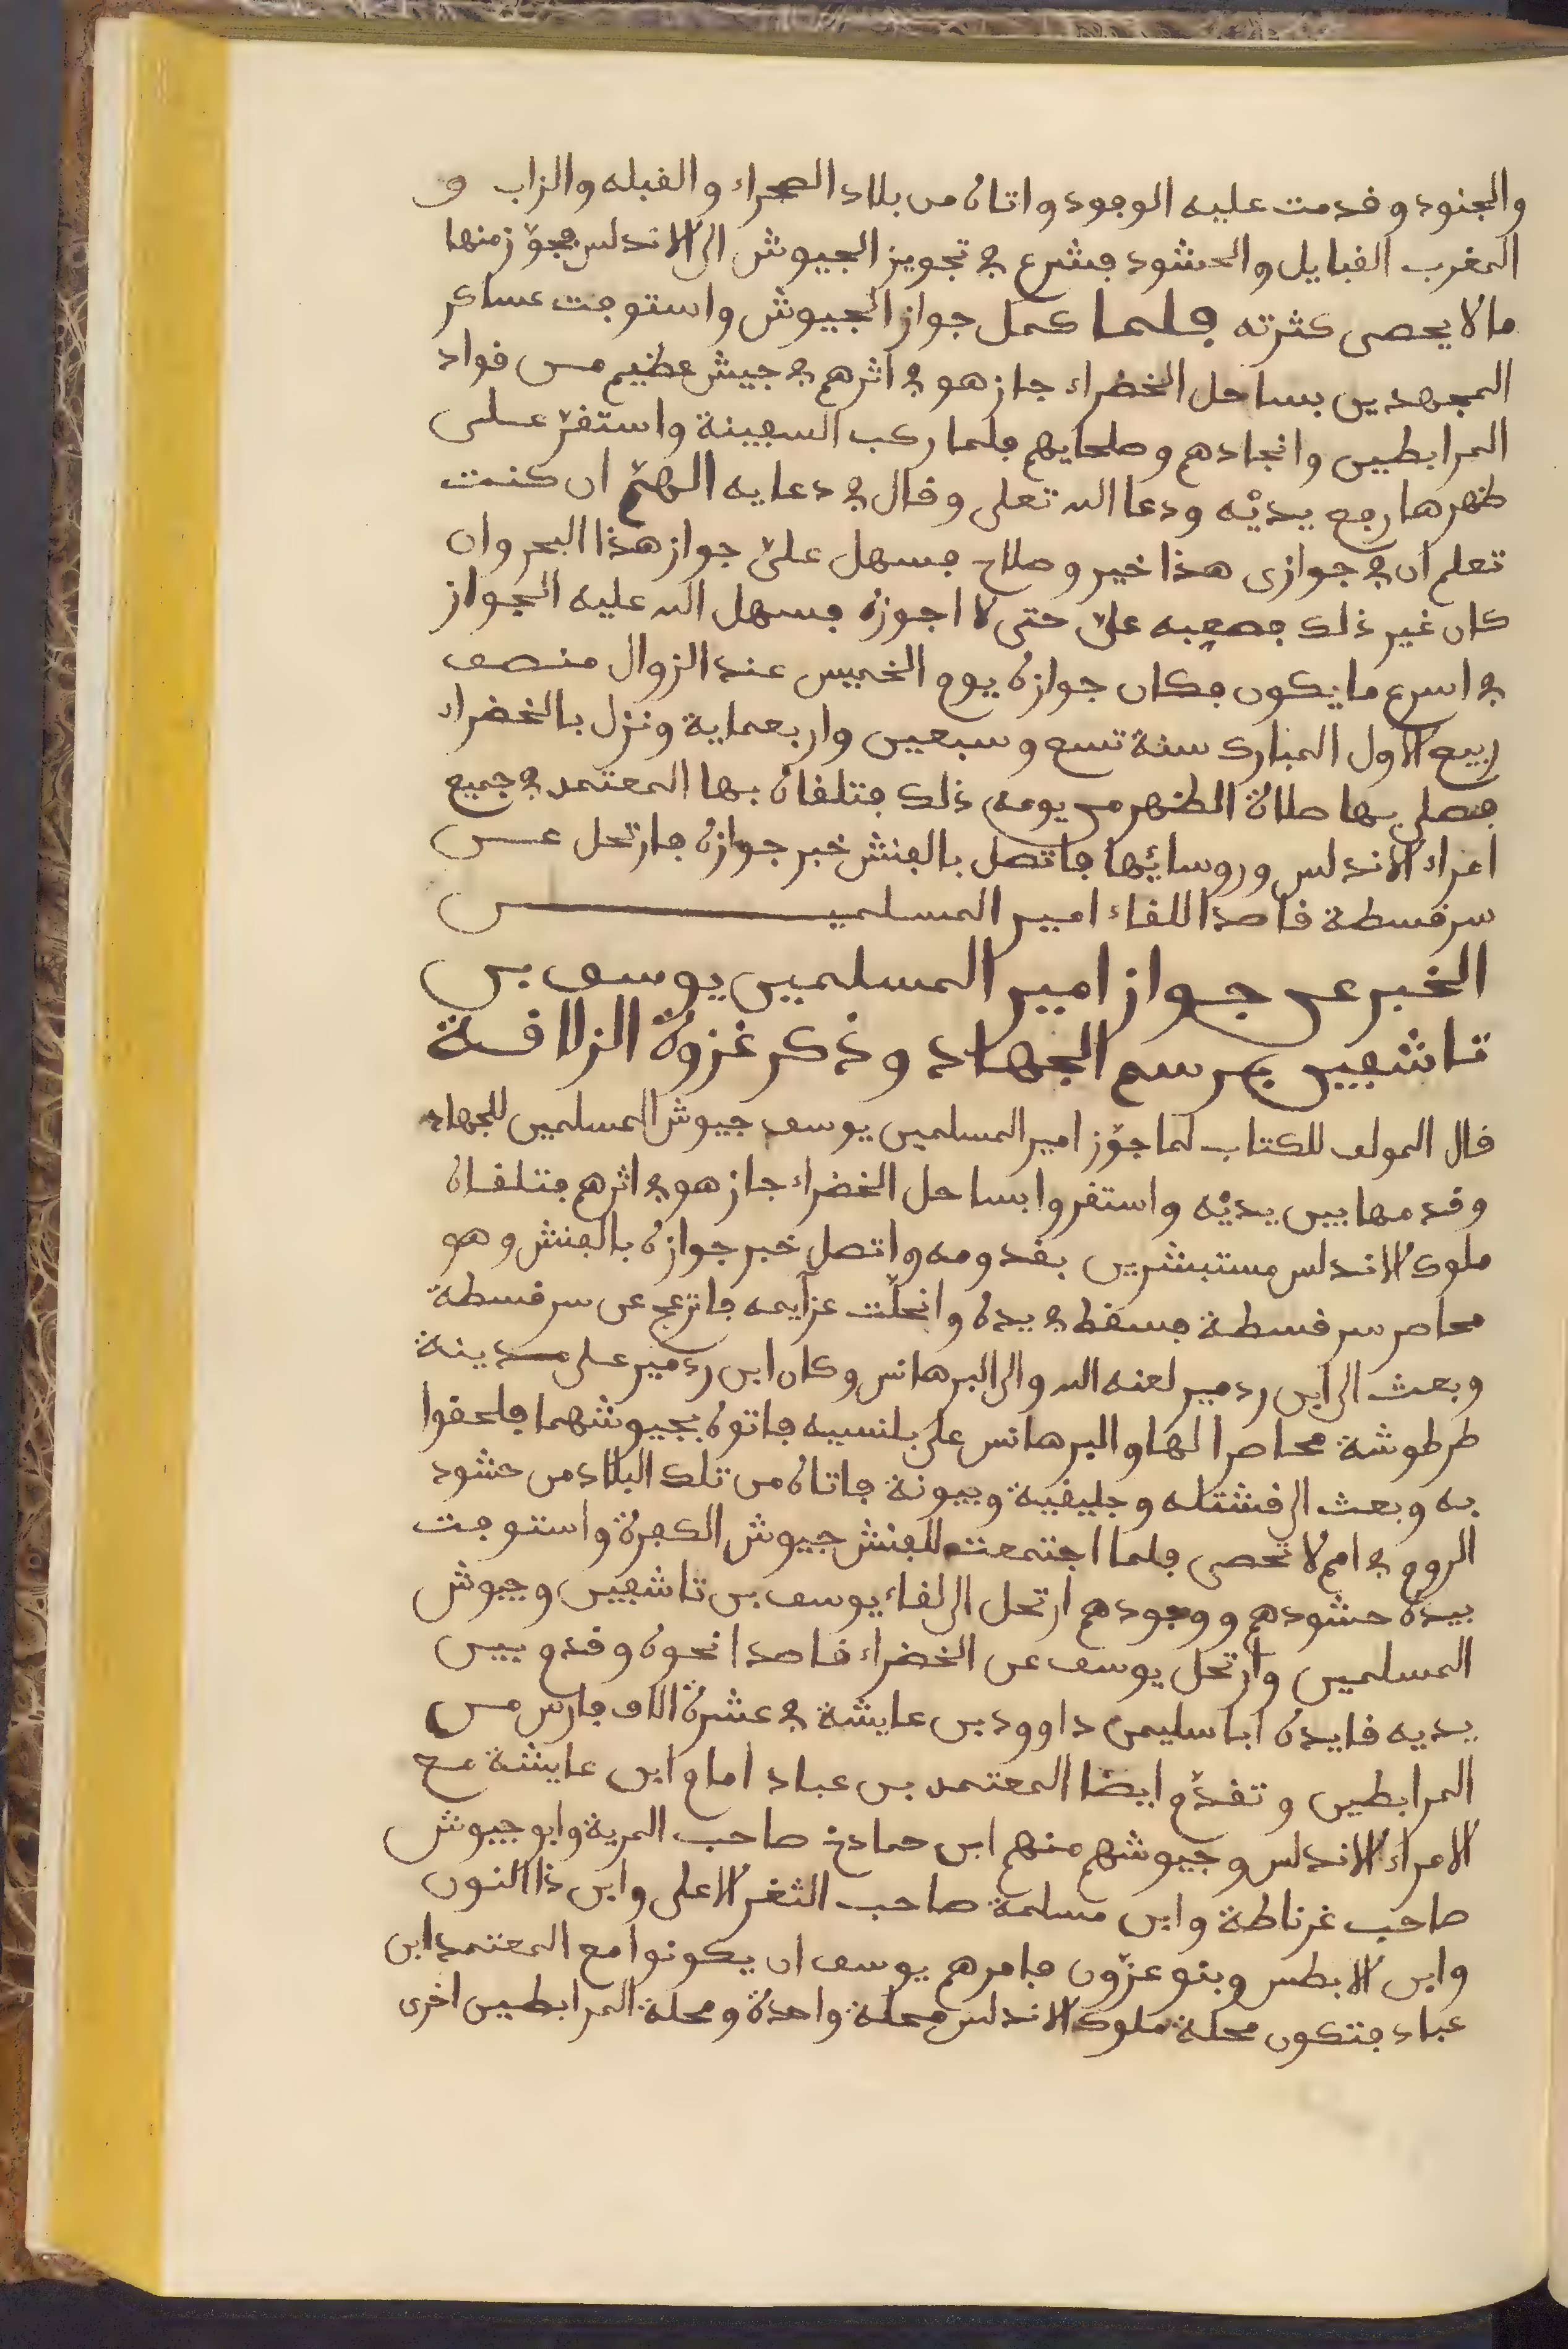 والجنود وقدمت عليه الوفود واتاه من بلاد الصحراء والقبله والزاب و
المغرب القبايل والحشود فشرع في تجويز الجيوش الى الاندلس فجوّز منها
ما لا يحصى كثرته فلما كمل جواز الجيوش واستوفت عساكر
المجهدين بساحل الخضراء جاز هو في اثرهم في جيش عظيم من قواد
المرابطين وانجادهم وصلحايهم فلما ركب السفينة واستقرّ على
ظهرها رفع يديْه ودعا الله تعلى وقال في دعايه اللهمّ ان كنت
تعلم ان في جوازى هذا خير وصلاح فسهل علىّ جواز هذا البحر وان
كان غير ذلك فصعبه علىّ حتى لا اجوزه فسهل الله عليه الجواز
في اسرع ما يكون فكان جوازه يوم الخميس عند الزوال منتصف
ربيع الاول المبارك سنة تسع وسبعين واربعماية ونزل بالخضراء
فصلى بها صلاة الظهر من يومه ذلك فتلقاه بها المعتمد في جميع
امراء الاندلس وروسائها فاتصل بالفنش خبر جوازه فارتحل عن
سرقسطة قاصدا للقاء امير المسلمين
الخبر عن جواز امير المسلمين يوسف بن
تاشفين برسم الجهاد وذكر غزوة الزلاقة
قال المولف للكتاب لما جوّز امير المسلمين يوسف جيوش المسلمين للجهاد
وقدمها بين يديْه واستقروا بساحل الخضراء جاز هو في اثرهم فتلقاه
ملوك الاندلس مستبشرين بقدومه واتصل خبر جوازه بالفنش وهو
محاصر سرقسطة فسقط في يده وانحلّت عزآيمه فانزعج عن سرقسطة
وبعث الى ابن ردمير لعنه الله والى البرهانس وكان ابن ردمير على مدينة
طرطوشة محاصرا لها والبرهانس على بلنسيه فاتوه بجيوشهما فلحقوا
به وبعث الى قشتله وجليقية وبيونة فاتاه من تلك البلاد من حشود
الروم في امم لا تحصى فلما اجتمعت للفنش جيوش الكفرة واستوفت
بيده حشودهم ووفودهم ارتحل الى لقاء يوسف بن تاشفين وجيوش
المسلمين وارتحل يوسف عن الخضراء قاصدا نحوه وقدم بين
يديه قايده ابا سليمن داوود بن عايشة في عشرة الاف فارس من
المرابطين وتقدّم ايضا المعتمد بن عباد امام ابن عايشة مع
الامراء الاندلس وجيوشهم منهم ابن صمادح صاحب المرية وابو جيوش
صاحب غرناطة وابن مسلمة صاحب الثغر الاعلى وابن ذا النون
وابن الابطس وبنو عزّون فامرهم يوسف ان يكونوا مع المعتمد ابن
عباد فتكون محلة ملوك الاندلس محلة واحدة ومحلة المرابطين اخرى